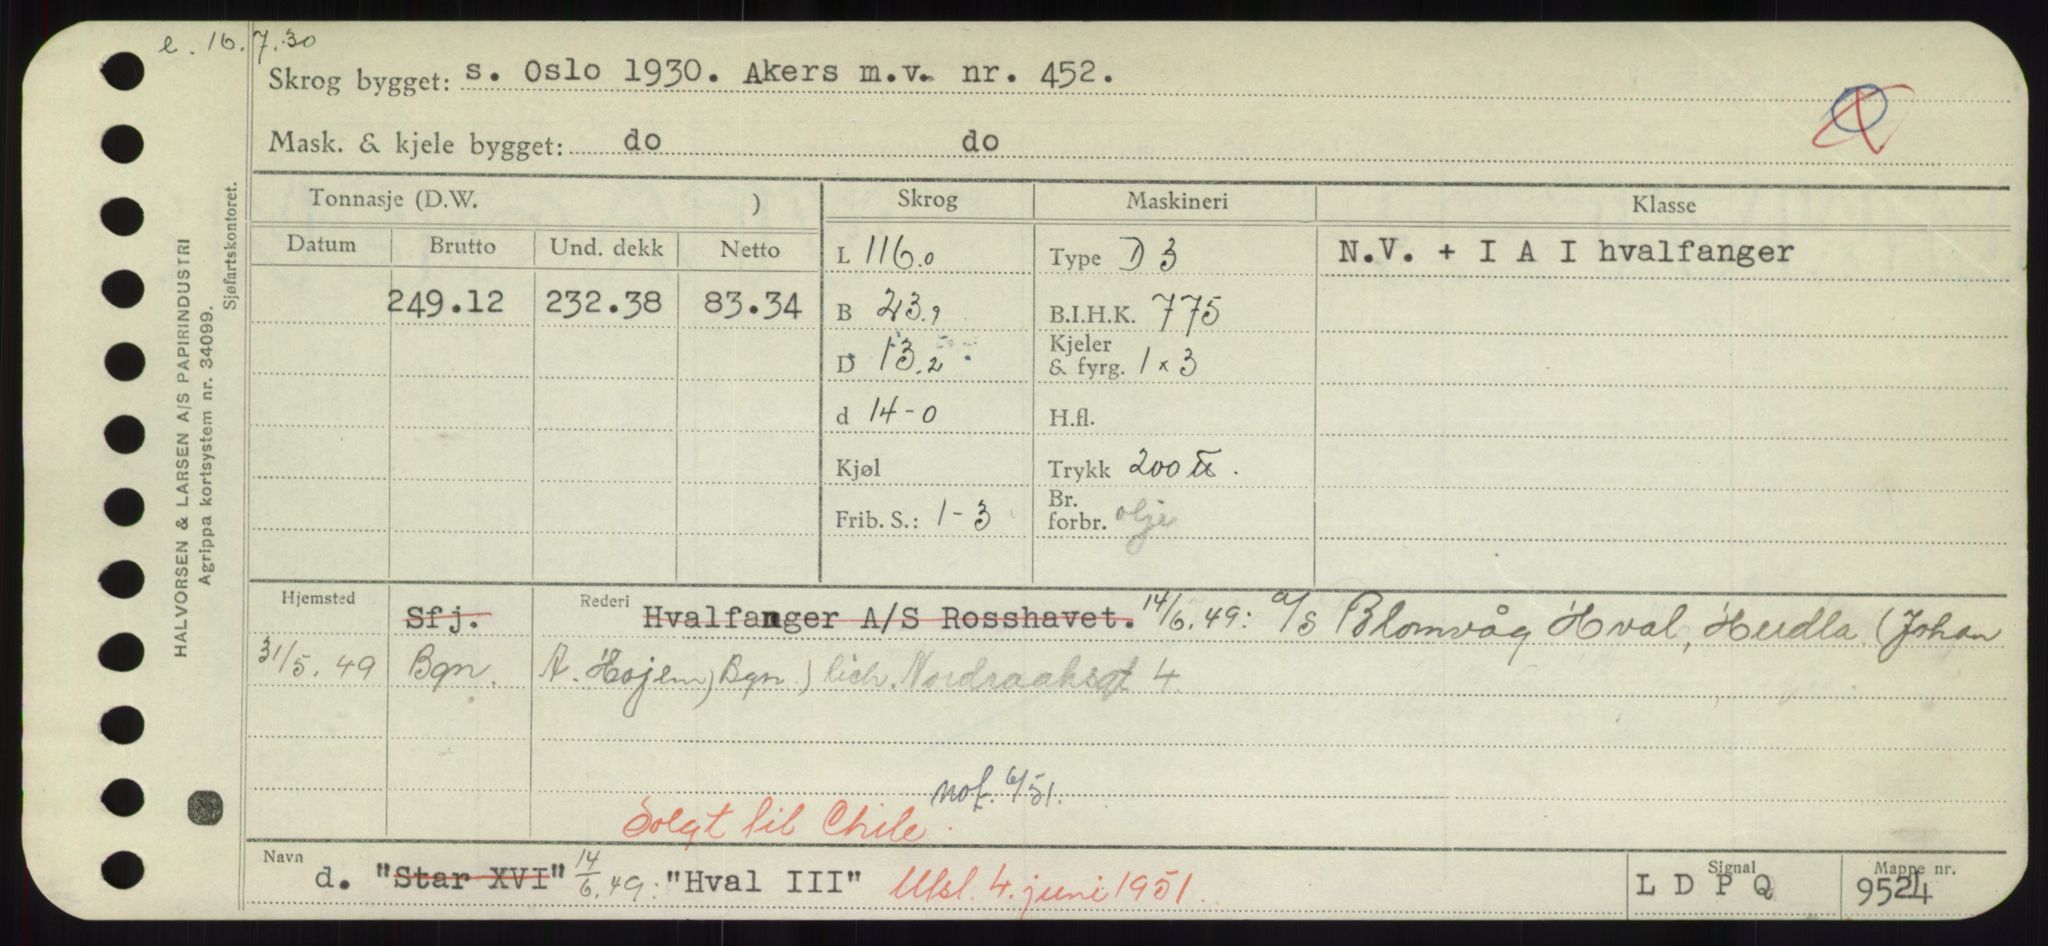 e. 16.7.30
Skrog bygget: s. Oslo 1930. Akers m.v. nr. 452.
Mask. & kjele bygget: do do
Tonnasje (D.W. ) Skrog Maskineri Klasse
Datum Brutto Und. dekk Netto L 116.0 Type D 3 N.V. + I A I hvalfanger
249.12 232.38 83.34 B 23.9 B.I.H.K. 775
D 13.2 Kjeler & fyrg. 1 x 3
d 14-0 H.fl.
Kjøl Trykk 200 ℔.
Frib. S.: 1-3 Br. forbr. olje
Hjemsted Sfj. Rederi Hvalfanger A/S Rosshavet. 14/6.49: a/s Blomvåg Hval, Herdla (Johan
31/5.49 Bgn. A. Hojem, Bgn.) Rich. Nordraaksgt 4
nof. 6/51.
Solgt til Chile.
Navn d. "Star XVI" 14/6.49: "Hval III" Utsl. 4. juni 1951. Signal L D P Q Mappe nr. 9524
HALVORSEN & LARSEN A/S PAPIRINDUSTRI
Agrippa kortsystem nr. 34099.
Sjøfartskontoret.